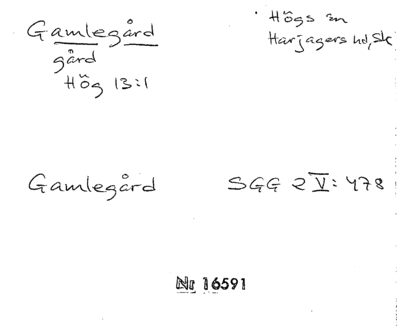 Gamlegård
gård
Hög 13:1
Högs sn
Harjagers hd, Sk
Gamlegård SGG 2 V: 478
Nr 16591